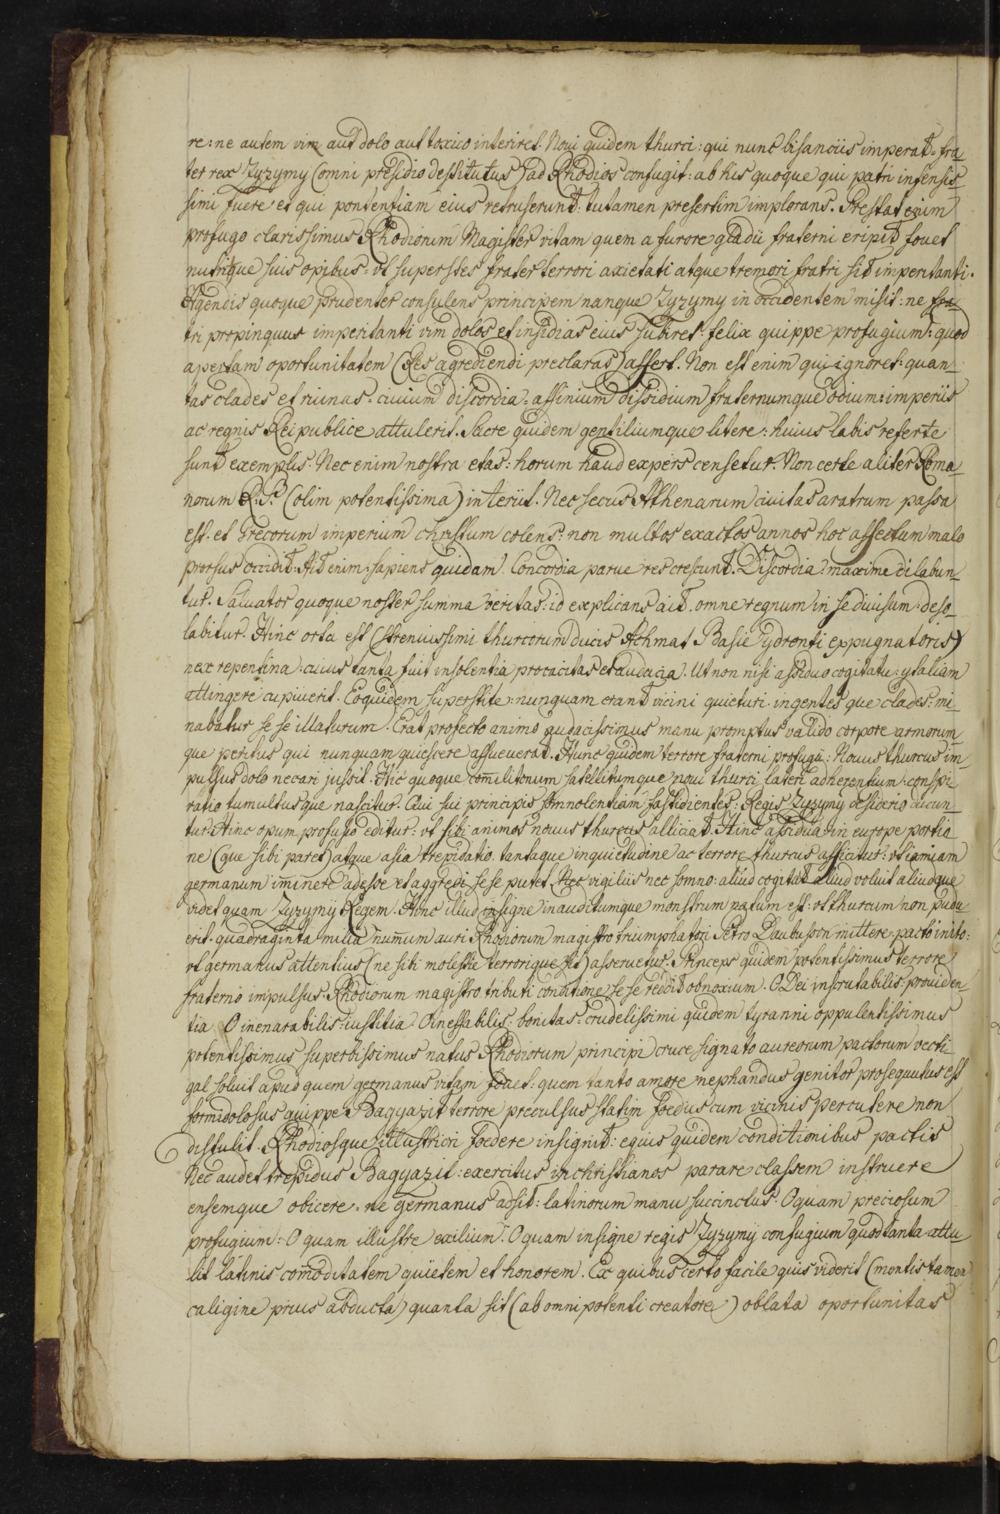 re: ne autem vim aut dolo aut toxico interiret. Novi quidem thurci: qui nunc bisanciis imperat. fra
ter rex Zyzymy (omni presidio destitutus) ad Rhodios confugit: ab his quoque qui patri infensis
simi fuere et qui pontentiam eius retruserunt: tutamen presertim implorans. Prestat enim
profugo clarissimus Rhodiorum Magister vitam quem a furore gladii fraterni eripit fovet
nutritque suis opibus. vt superstes frater terrori axietati atque tremori fratri sit imperitanti.
Agendis quoque prudenter consulens principem nanque Zyzymy in occidentem misit: ne fra
tri propinquus imperitanti vim dolos et insidias eius subiret. felix quippe profugium: quod
apertam oportunitatem (Res agrediendi preclaras) affert. Non est enim qui ignoret: quan
tas clades et ruinas. civium discordia. affinium dissidium fraternumque odium: imperiis
ac regnis Reipublice attulerit. Sacre quidem gentiliumque litere: huius labis referte
sunt exemplis. Nec enim nostra etas: horum haud expers censetur. Non certe aliter Roma
norum R.P. (olim potentissima) interiit. Nec secus Athenarum civitas aratrum passa
est. et Grecorum imperium christum colens: non multos exactos annos hoc affectum malo
prorsus occidit. Ait enim sapiens quidam. Concordia parue res crescunt. Discordia: maxime dilabun
tur. Salvator quoque noster summa veritas: id explicans ait. omne regnum in se divisum. deso
labitur. Hinc orta est (strenuissimi thurcorum ducis Achmat Basie ydronti expugnatoris)
nex repentina: cuius tanta fuit insolentia procacitas et audacia. Ut non nisi assiduo cogitatu: ytaliam
attingere cupiverit. Eoquidem superstite: nunquam erant vicini quieturi. ingentesque clades: mi
nabatur se se illaturum. Erat profecto animo audacissimus manu promptus valido corpore armorum
que peritus qui nunquam quiescere assueverat. Hunc quidem terrore fraterni profugii: Novus thurcus im
pulsus dolo necari jussit. Hic quoque comilitonum satellitumque novi thurci lateri adherentium: conspi
ratio tumultusque nascitur. Qui sui principis somnolentiam fastidientes: Regis Zyzymy desiderio ducun
tur. Hinc opum profusio editur: vt sibi animos novus thurcus alliciat. Hinc assidua: in europe portio
ne (que sibi paret) atque asia trepidatio. tantaque inquietudine ac terrore thurcus afficitur: vt iamiam
germanum iminere adesse et aggredi sese putet. Nec vigiliis nec somno: aliud cogitat aliud voluit aliudque
videt quam Zyzymy Regem. Hinc illud insigne inauditumque monstrum natum est: vt thurcum non pudu
erit. quadraginta milia numum auri Rhodiorum magistro triumphatori Petro Daubusson mittere: pacto inito:
vt germanus attentius (ne sibi molestie terrorique sit) asservetur. Princeps quidem potentissimus terrore
fraterno impulsus. Rhodiorum magistro tributi conditione se se reddit obnoxium. O Dei inscrutabilis: providen
tia. O inenarabilis: iustitia. O ineffabilis: bonitas. crudelissimi quidem tyranni oppulentissimus
potentissimus superbissimus natus Rhodiorum principi cruce signato aureorum pactorum vecti
gal soluit apud quem germanus vitam fovet: quem tanto amore nephandus genitor prosequutus est
formidolosus quippe Bagyazit terrore preculsus statim foedus cum vicinis percutere non
distulit. Rhodiosque illustriori foedere insignit: equis quidem conditionibus pactis
Nec audet trepidus Bagyazit: exercitus in christianos parare classem instruere
ensemque obicere. ne germanus adsit: latinorum manu succinctus. O quam preciosum
profugium: O quam illustre exilium. O quam insigne regis Zyzymy confugium quod tanta attu
lit latinis comoditatem quietem et honorem. Ex quibus certo facile quis viderit (mentis tamen
caligine prius abducta) quanta sit (ab omnipotenti creatore) oblata oportunitas